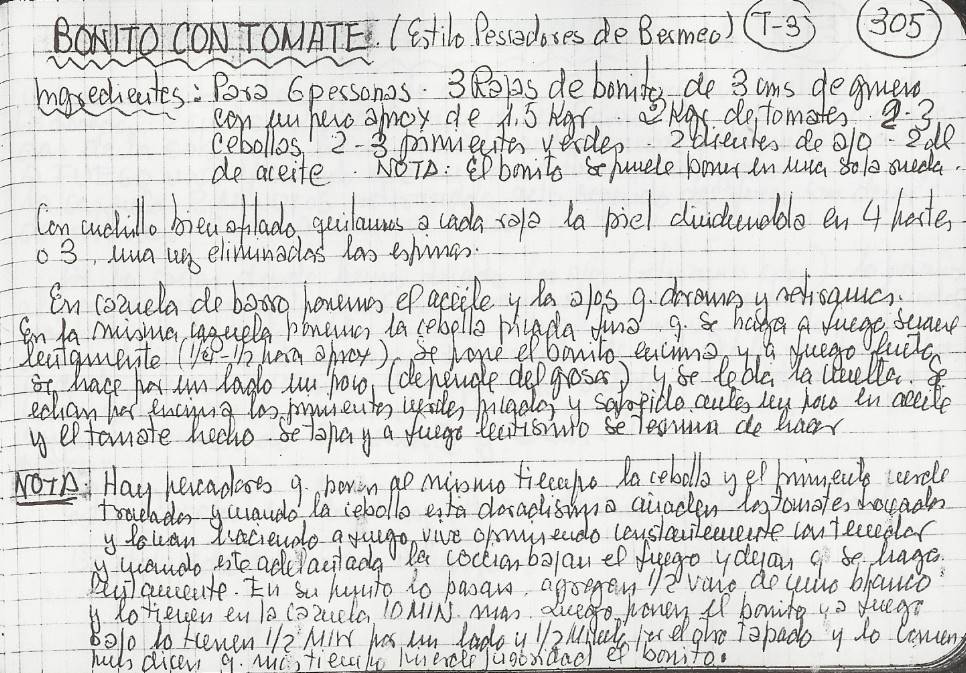 BONITO CON TOMATE. (Estilo Pescadores de Bermeo) T-3 305
Ingredientes: Para 6 personas. 3 Rajas de bonito de 3 cms de grueso
con un peso aprox de 1.5 Kgr. 2 Kgr de tomates. 2-3
cebollas 2-3 pimientos verdes. 2 dientes de ajo - 2 dl
de aceite. NOTA: El bonito se puede poner en una sola rueda.
Con cuchillo bien afilado quitamos a cada raja la piel dividiendola en 4 partes
o 3, una vez eliminadas las espinas.
En cazuela de barro ponemos el aceite y la ajos q. doramos y retiramos.
En la misma cazuela ponemos la cebolla picada fina q. se haga a fuego suave
lentamente (1/4-1/2 hora aprox). Se pone el bonito encima y a fuego fuerte
se hace por un lado un poco, (depende del grosor) y se le da la vuelta. Se
echan por encima los pimientos verdes picados y sofreido antes un poco en aceite
y el tomate hecho. Se tapa y a fuego lentisimo se termina de hacer
NOTA: Hay pescadores q. ponen al mismo tiempo la cebolla y el pimiento verde
troceados y cuando la cebolla esta doradisima añaden los tomates troceados
y lo van haciendo a fuego vivo oprimiendo constantemente con tenedor
y cuando este adelantada la coccion bajan el fuego y dejan q. se haga
lentamente. En su punto lo pasan, agregan 1/2 vaso de vino blanco
y lo tienen en la cazuela 10 MIN. mas. Luego ponen el bonito y a fuego
bajo lo tienen 1/2 MIN por un lado y 1/2 Minuto por el otro tapado y lo comen
pues dicen q. mas tiempo pierde jugosidad el bonito.